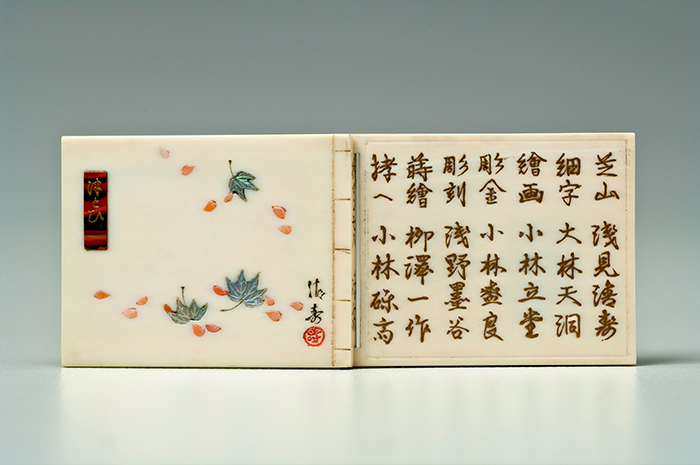 芝山 浅見
細字 大林天洞
繪画 小林立堂
彫金 小林良
彫刻 浅野墨谷
蒔繪 柳澤一作
拵へ 小林高
津とひ
寿